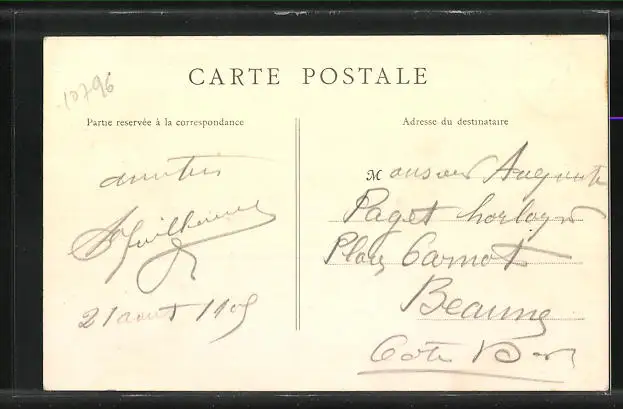 10796
CARTE POSTALE
Partie reservée à la correspondance
Adresse du destinataire
amitiés
21 aout 1905
Monsieur Auguste
Paget horloger
Place Carnot
Beaune
Côte D'or